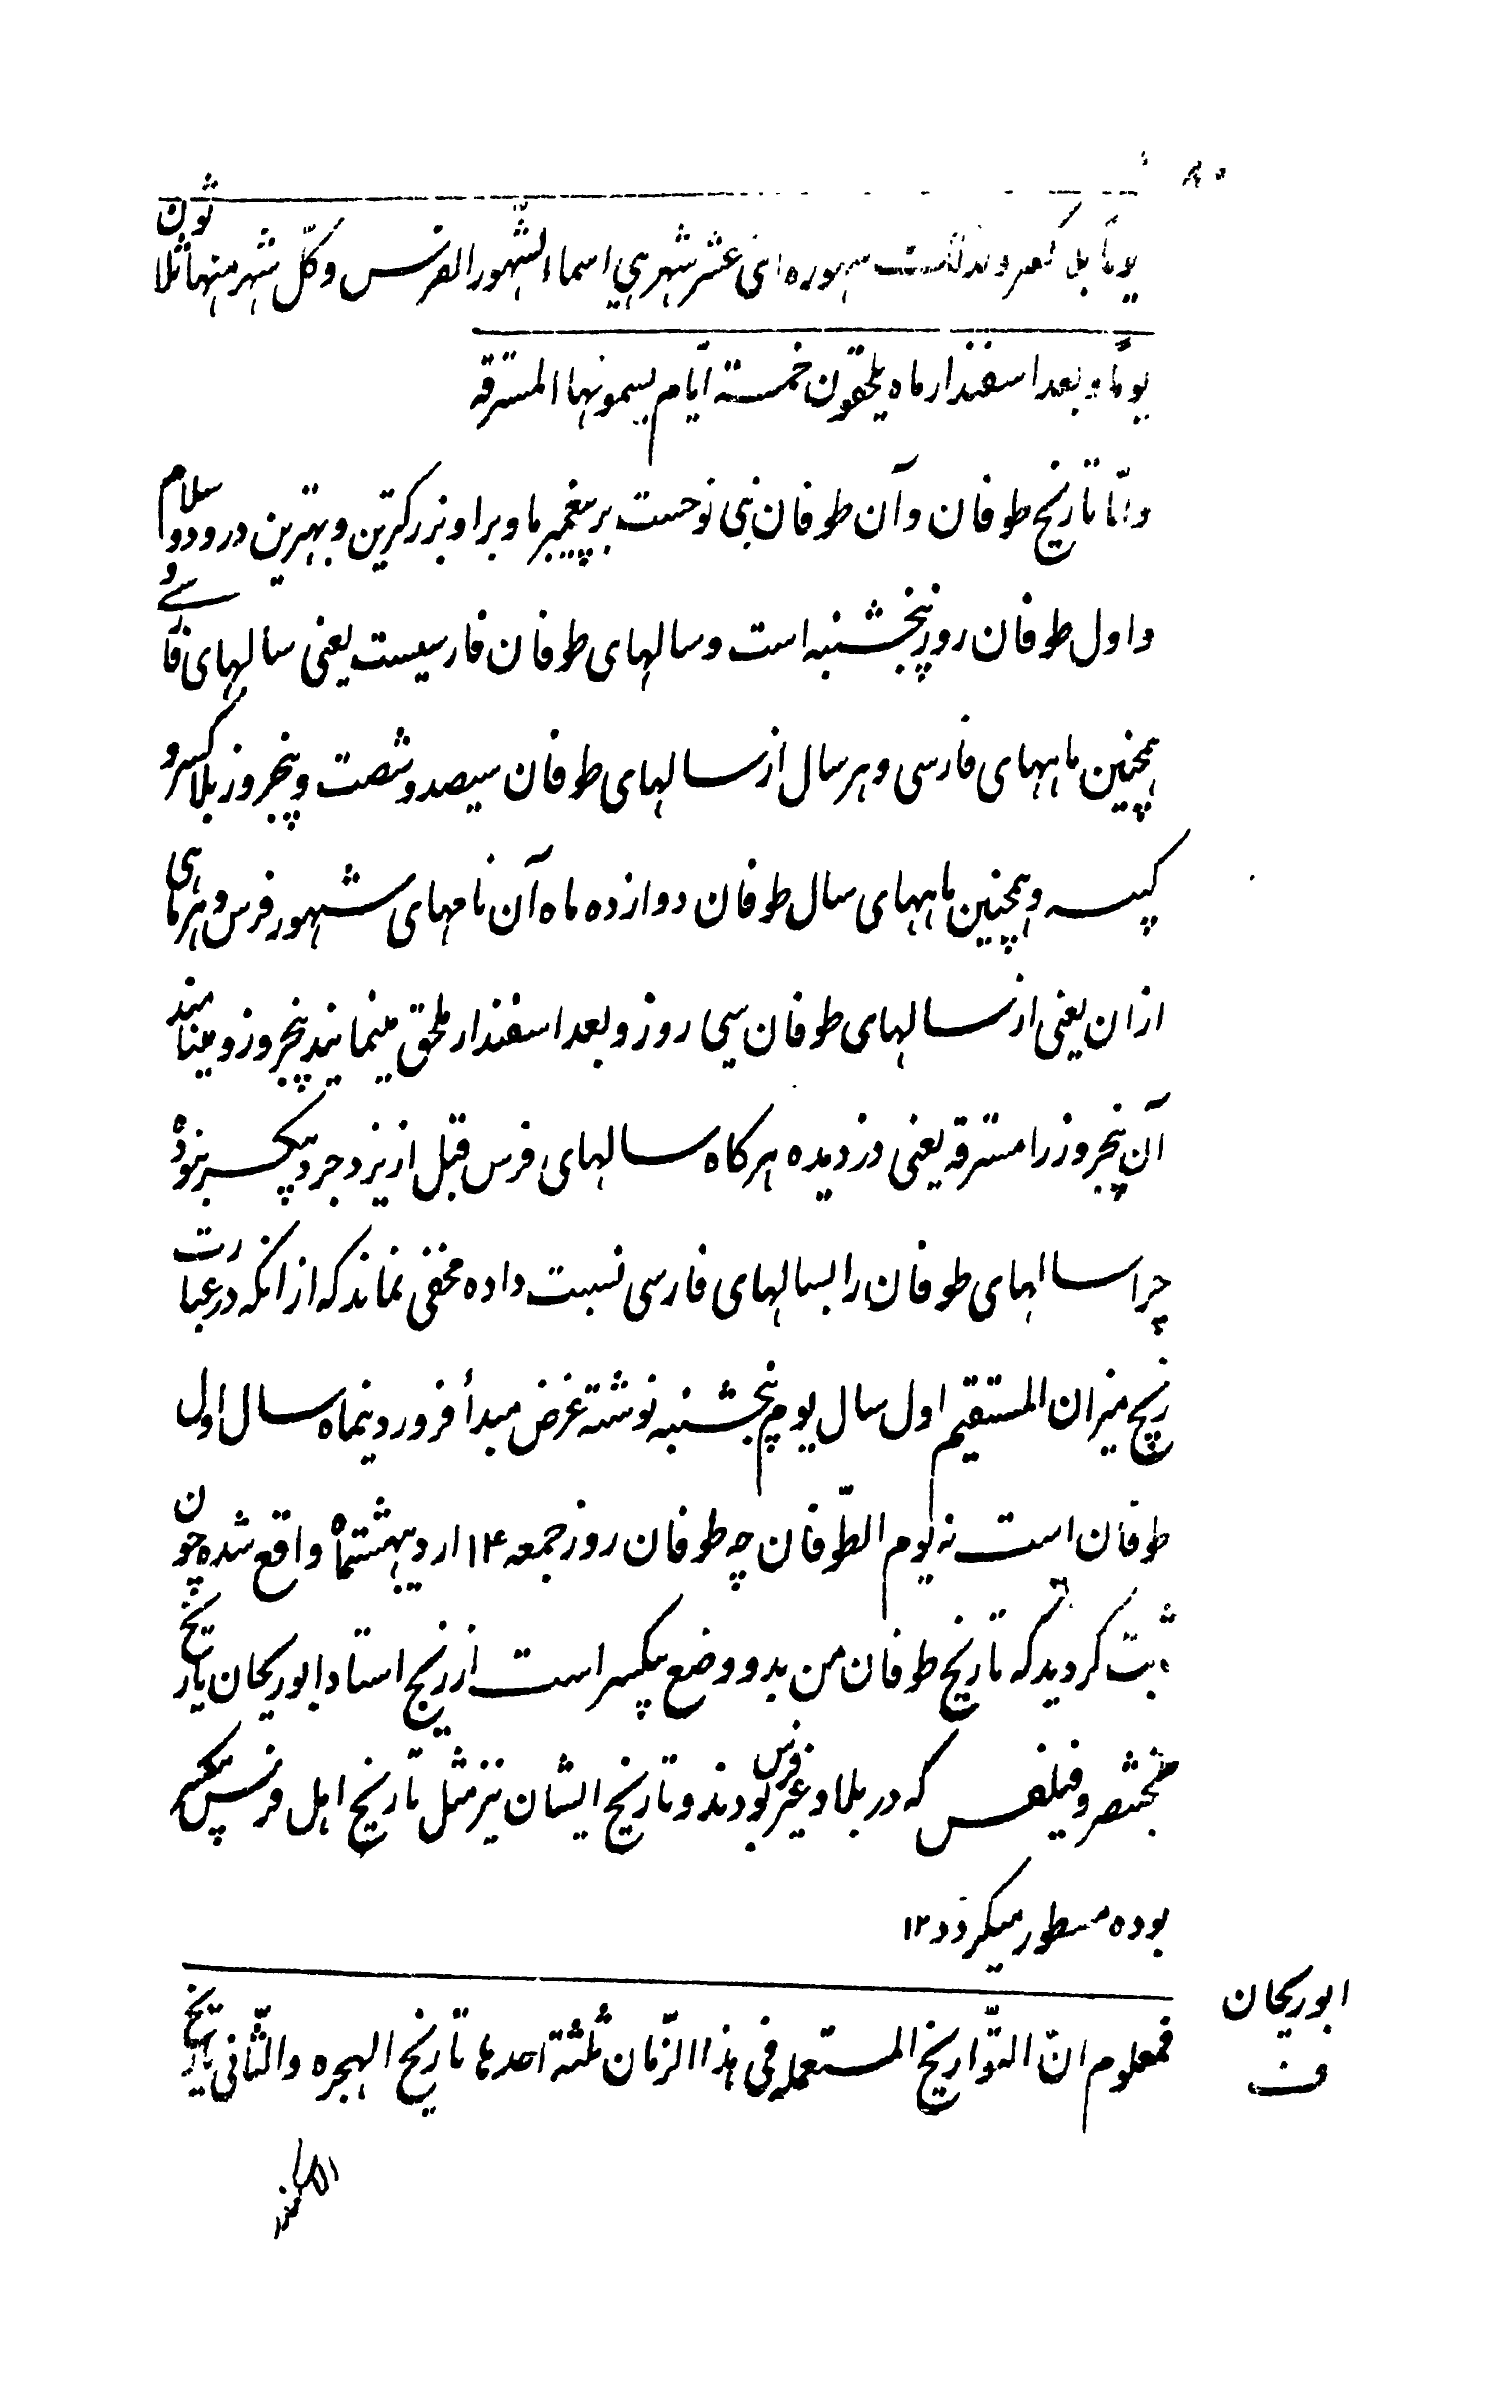 یوماً بلا کسر وکذلک شهوره اثنی عشر شهر هی اسماء الشهور الفرس وکلّ شهر منها ثلاثون
یوماً وبعد اسفندار ماه یلحقون خمسة ایّام یسمونها المسترقه
وامّا تاریخ طوفان وآن طوفان نبی نوحست بر پیغمبر ما وبر او بزرکترین وبهترین درود وسلام
واول طوفان روز پنجشنبه است وسالهای طوفان فارسیست یعنی سالهای فارسی
همچنین ماههای فارسی وهر سال از سالهای طوفان سیصد وشصت وپنجروز بلا کسر و
کبیسه وهمچنین ماههای سال طوفان دوازده ماه آن نامهای شهور فرس وهر ماهی
ازان یعنی از سالهای طوفان سی روز وبعد اسفندار ملحق مینمایند پنجروز ومینامند
آن پنجروز را مسترقه یعنی دزدیده هرکاه سالهای فرس قبل از یزدجرد بیکسر نبوده
چرا سالهای طوفان را بسالهای فارسی نسبت داده مخفی نماند که از انکه در عبارت
زیج میزان المستقیم اول سال یوم پنجشنبه نوشته غرض مبدأ فروردینماه سال اول
طوفان است نه یوم الطّوفان چه طوفان روز جمعه ۱۴ اردیبهشتماه واقع شده چون
ثابت کردید که تاریخ طوفان من بدو وضع بیکسر است از زیج استاد ابوریحان تاریخ
بختنصر وفیلفس که در بلاد غیر فرس بودند وتاریخ ایشان نیز مثل تاریخ اهل فرس بیکسر
بوده مسطور میکردد ۱۲
ابوریحان
ف
فمعلوم انّ التّواریخ المستعمله فی هذا الزّمان ثلثة احدها تاریخ الهجره والثّانی تاریخ